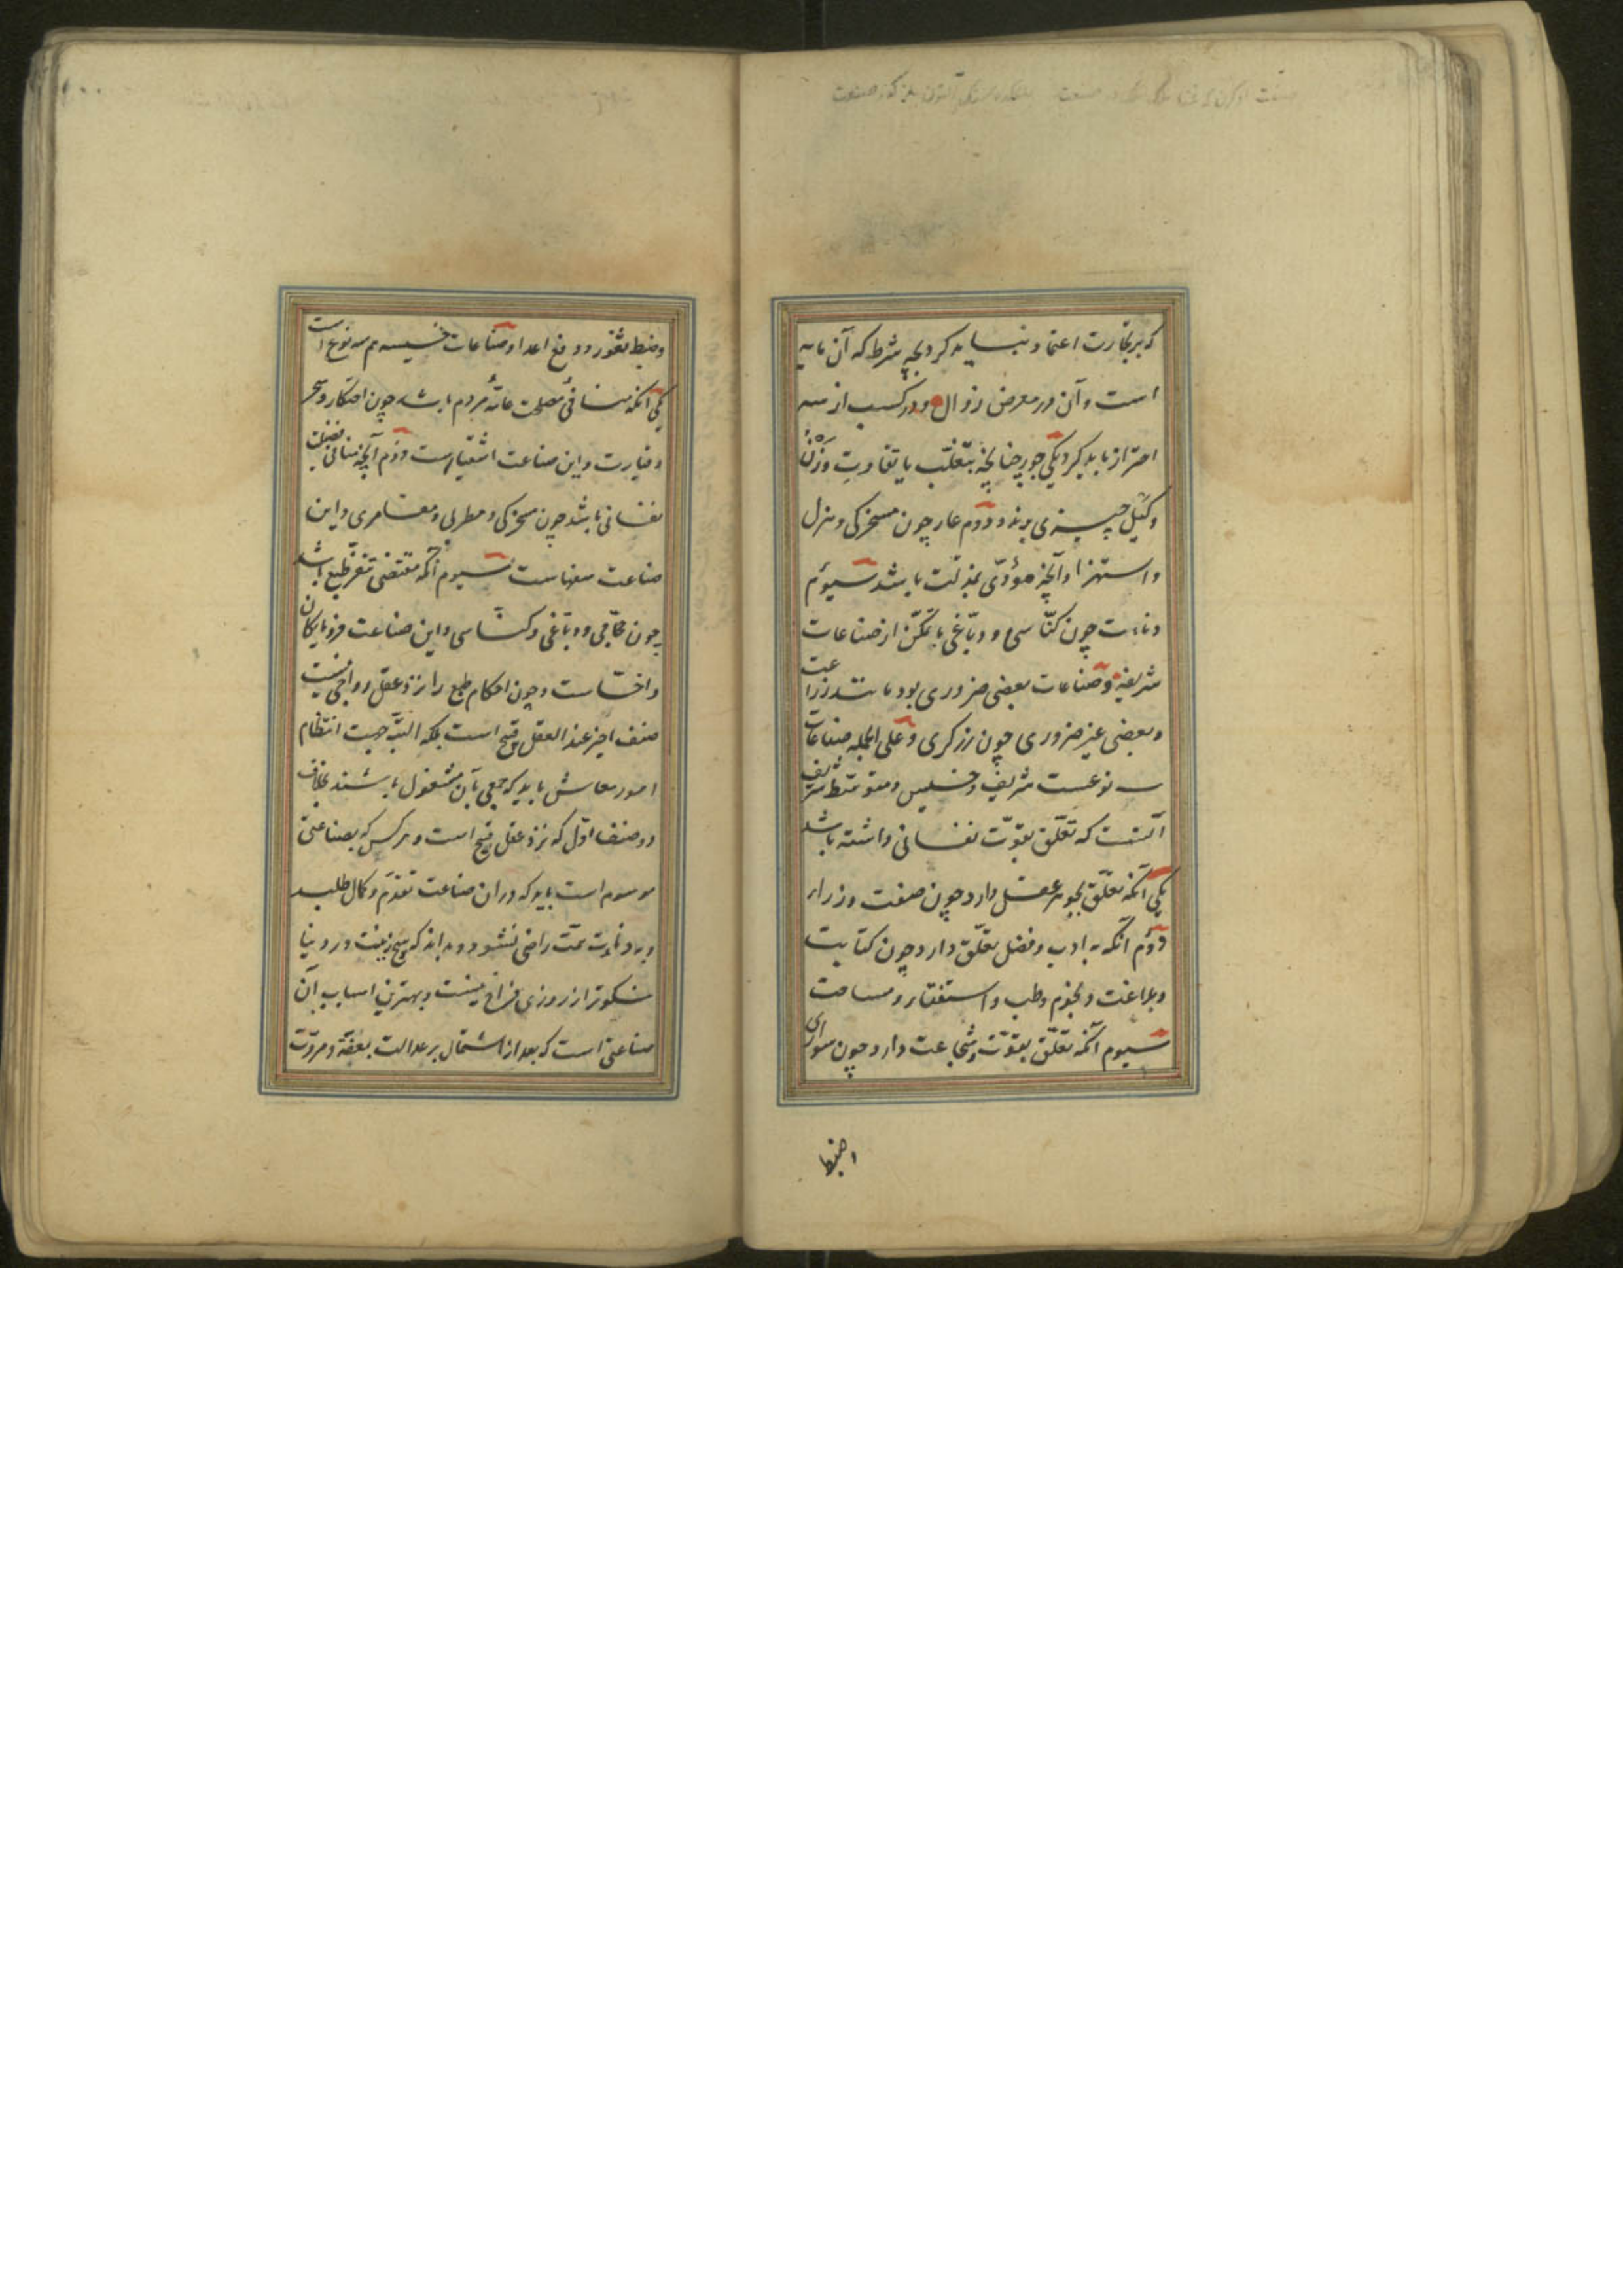 که بر تجارت اعتماد نباید کرد چه شرط که آن مایه
است و آن در معرض زوال و در کسب از سه
احتراز باید کرد یکی جور چنانچه بتغلب یا تفاوت وزن
و کیل چیزی برند و دوم عار چون مسخرکی و هزل
و استهزا و آنچه مؤدّی بمذلّت باشد سیوم
دناءت چون کنّاسی و دبّاغی با تمکّن از صناعات
شریفه و صناعات بعضی ضروری بود مانند زراعت
و بعضی غیر ضروری چون زرکری و علی الجمله صناعات
سه نوعست شریف و خسیس و متوسّط شریف
آنست که تعلّق بقوّت نفسانی داشته باشد
یکی آنکه تعلّق بجوهر عقل دارد چون صنعت وزرا
دوّم آنکه به ادب و فضل تعلّق دارد چون کتابت
و بلاغت و نجوم و طب و استیفا و مساحت
سیوم آنکه تعلّق بقوّت و شجاعت دارد چون سواری
و ضبط
و ضبط ثغور و دفع اعدا و صناعات خسیسه هم سه نوع است
یکی آنکه منافئ مصلحت عامّهٔ مردم باشد چون احتکار و سحر
و قیادت و این صناعت اشقیاست دوّم آنچه منافی فضیلت
نفسانی باشد چون مسخرکی و مطربی و مقامری و این
صناعت سفهاست سیوم آنکه مقتضی تنفّر طبع باشد
چون حجّامی و دبّاغی و کنّاسی و این صناعت فرومایکان
و اخسّاست و چون احکام طبع را نزد عقل رواجی نیست
صنف اخیر عند العقل قبیح است بلکه البتّه جهت انتظام
امور معاش باید که جمعی بآن مشغول باشند بخلاف
دو صنف اوّل که نزد عقل قبیح است و هر کس که بصناعتی
موسوم است باید که در ان صناعت تقدّم و کمال طلبد
و به دناءت همّت راضی نشود و بداند که هیچ زینت در دنیا
نیکوتر از روزی فراخ نیست و بهترین اسباب آن
صناعتی است که بعد از اشتمال بر عدالت بعفّة و مروّت